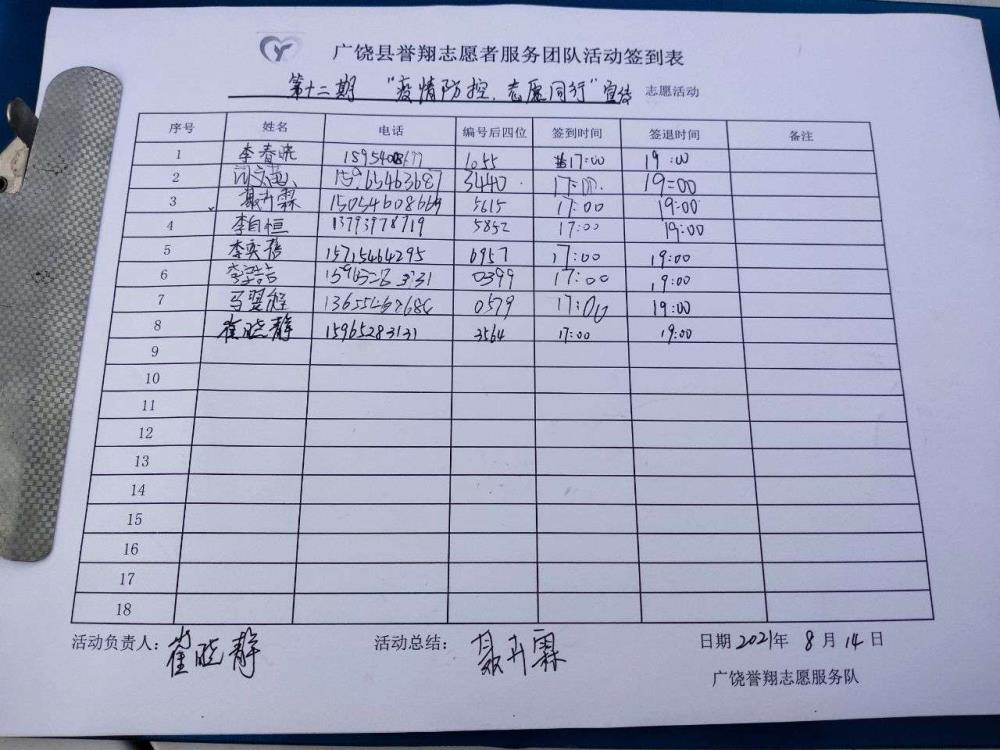 广饶县誉翔志愿者服务团队活动签到表
第十二期 “疫情防控,志愿同行”宣传 志愿活动
序号 姓名 电话 编号后四位 签到时间 签退时间 备注
1 李春晓 1055 17:00 19:00
2 15965463687 3440 17:00 19=00
3 聂卉霖 15054608664 5615 17:00 19:00
4 李自恒 13793978719 5852 17:00 19:00
5 李奕 15715464295 6957 17:00 19:00
6 李浩吉 0399 17:00 19:00
7 马翌 0579 17:00 19:00
8 崔晓静 15965283131 3564 17:00 19:00
9
10
11
12
13
14
15
16
17
18
活动负责人: 崔晓静 活动总结: 聂卉霖 日期 2021年 8月 14日
广饶誉翔志愿服务队